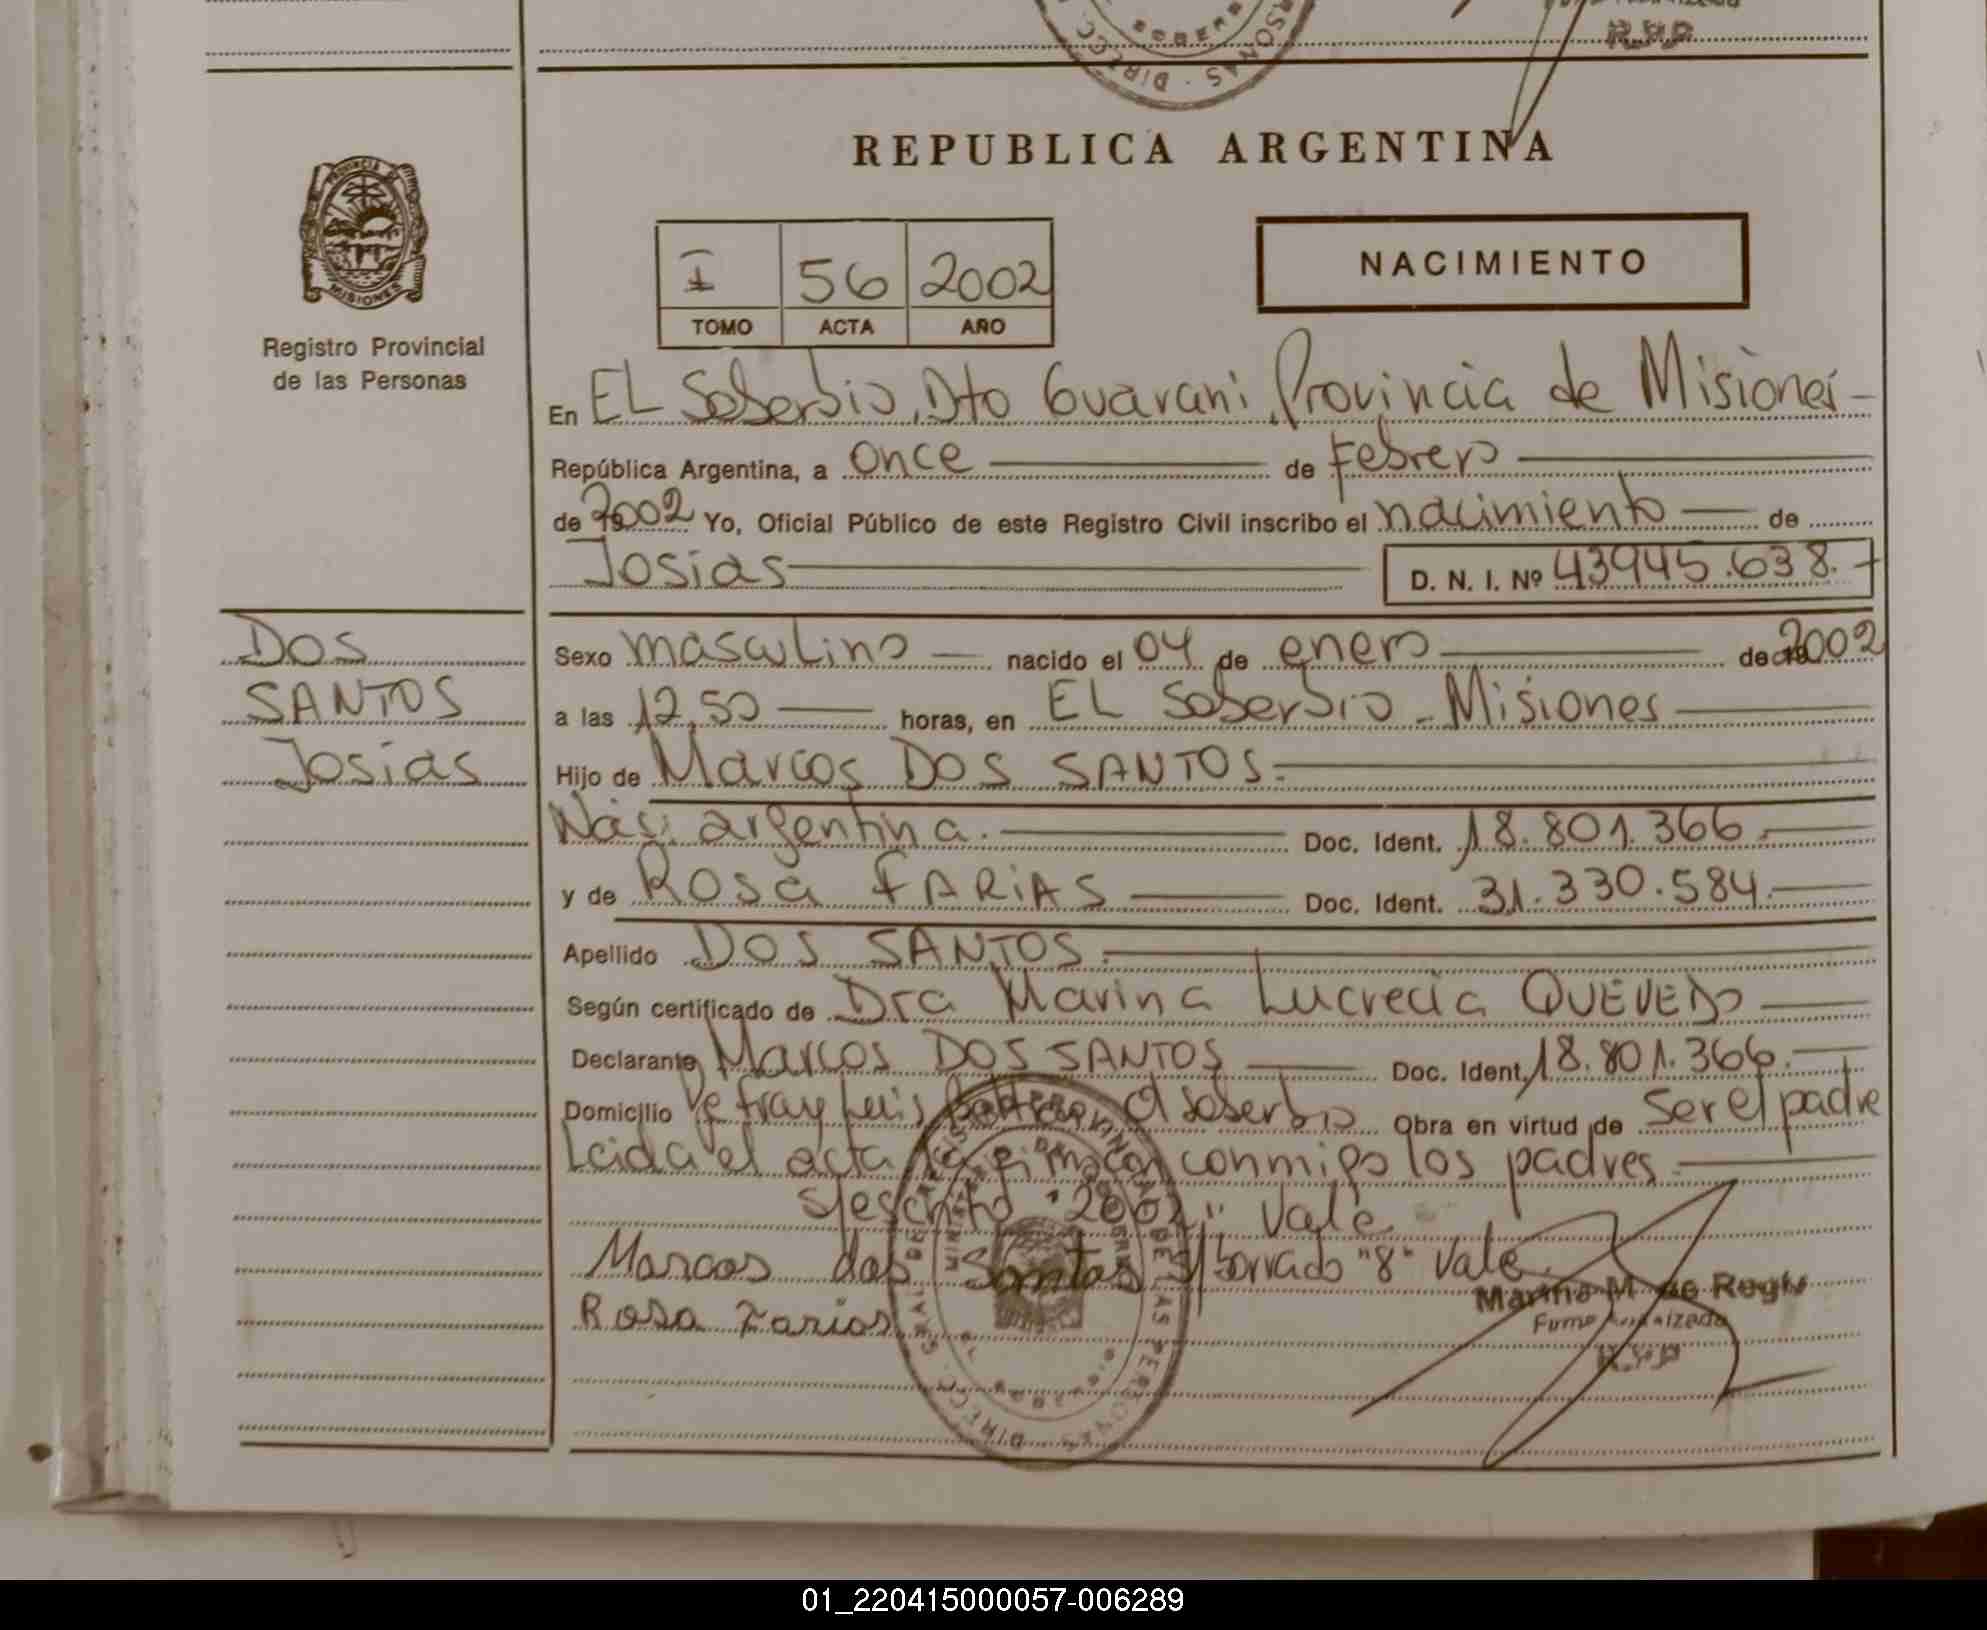 REPUBLICA ARGENTINA
PROVINCIA DE
MISIONES
Registro Provincial
de las Personas
I 56 2002
TOMO ACTA AÑO
NACIMIENTO
En EL Soberbio, Dto Guarani, Provincia de Misiones
República Argentina, a once de Febrero
de 2002 Yo, Oficial Público de este Registro Civil inscribo el nacimiento de
Josias D. N. I. Nº 43945.638.
DOS
SANTOS
Josias
Sexo masculino nacido el 04 de enero de 2002
a las 12,50 horas, en EL Soberbio - Misiones
Hijo de Marcos DOS SANTOS.
Nac: argentina. Doc. Ident. 18.801.366.
y de Rosa FARIAS Doc. Ident. 31.330.584.
Apellido DOS SANTOS.
Según certificado de Dra Marina Lucrecia QUEVEDO
Declarante Marcos DOS SANTOS Doc. Ident. 18.801.366.
Domicilio fray Luis Soberbio Obra en virtud de Ser el padre
Leida el acta la firman conmigo los padres.
s/escrito "2002" Vale
Marcos dos Santos s/borrado "8" Vale.
Rosa Farias
Marina M. de Regis
Firma Autorizada
R.P.P
01_220415000057-006289